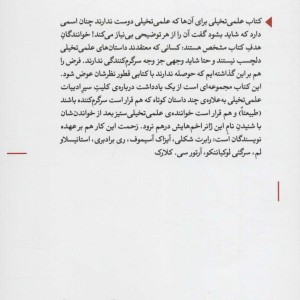 کتاب علمی‌تخیلی برای آن‌ها که علمی‌تخیلی دوست ندارند چنان اسمی
دارد که شاید بشود گفت آن را از هر توضیحی بی‌نیاز می‌کند! خوانندگانِ
هدفِ کتاب مشخص هستند: کسانی که معتقدند داستان‌های علمی‌تخیلی
دلچسب نیستند و حتا شاید وجهی جز وجه سرگرم‌کنندگی ندارند. فرض را
هم بر این گذاشته‌ایم که حوصله ندارند با کتابی قطور نظرشان عوض شود.
این کتاب مجموعه‌ای است از یک یادداشت درباره‌ی کلیتِ سیرِ ادبیات
علمی‌تخیلی به‌علاوه‌ی چند داستان کوتاه که هم قرار است سرگرم‌کننده باشند
(طبیعتاً) و هم قرار است خواننده‌ی علمی‌تخیلی ستیز بعد از خواندن‌شان
با شنیدنِ نامِ این ژانر اخم‌هایش درهم نرود. زحمت این کار هم بر عهده
نویسندگان است: رابرت شکلی، آیزاک آسیموف، ری برادبری، استانیسلاو
لم، سرگئی لوکیاننکو، آرتور سی. کلارک